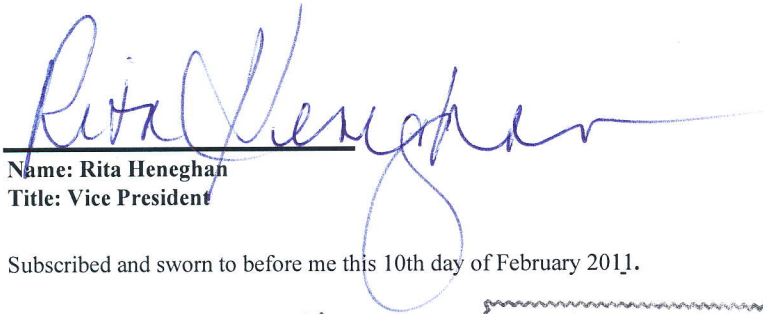 Rita Heneghan
Name: Rita Heneghan
Title: Vice President
Subscribed and sworn to before me this 10th day of February 2011.